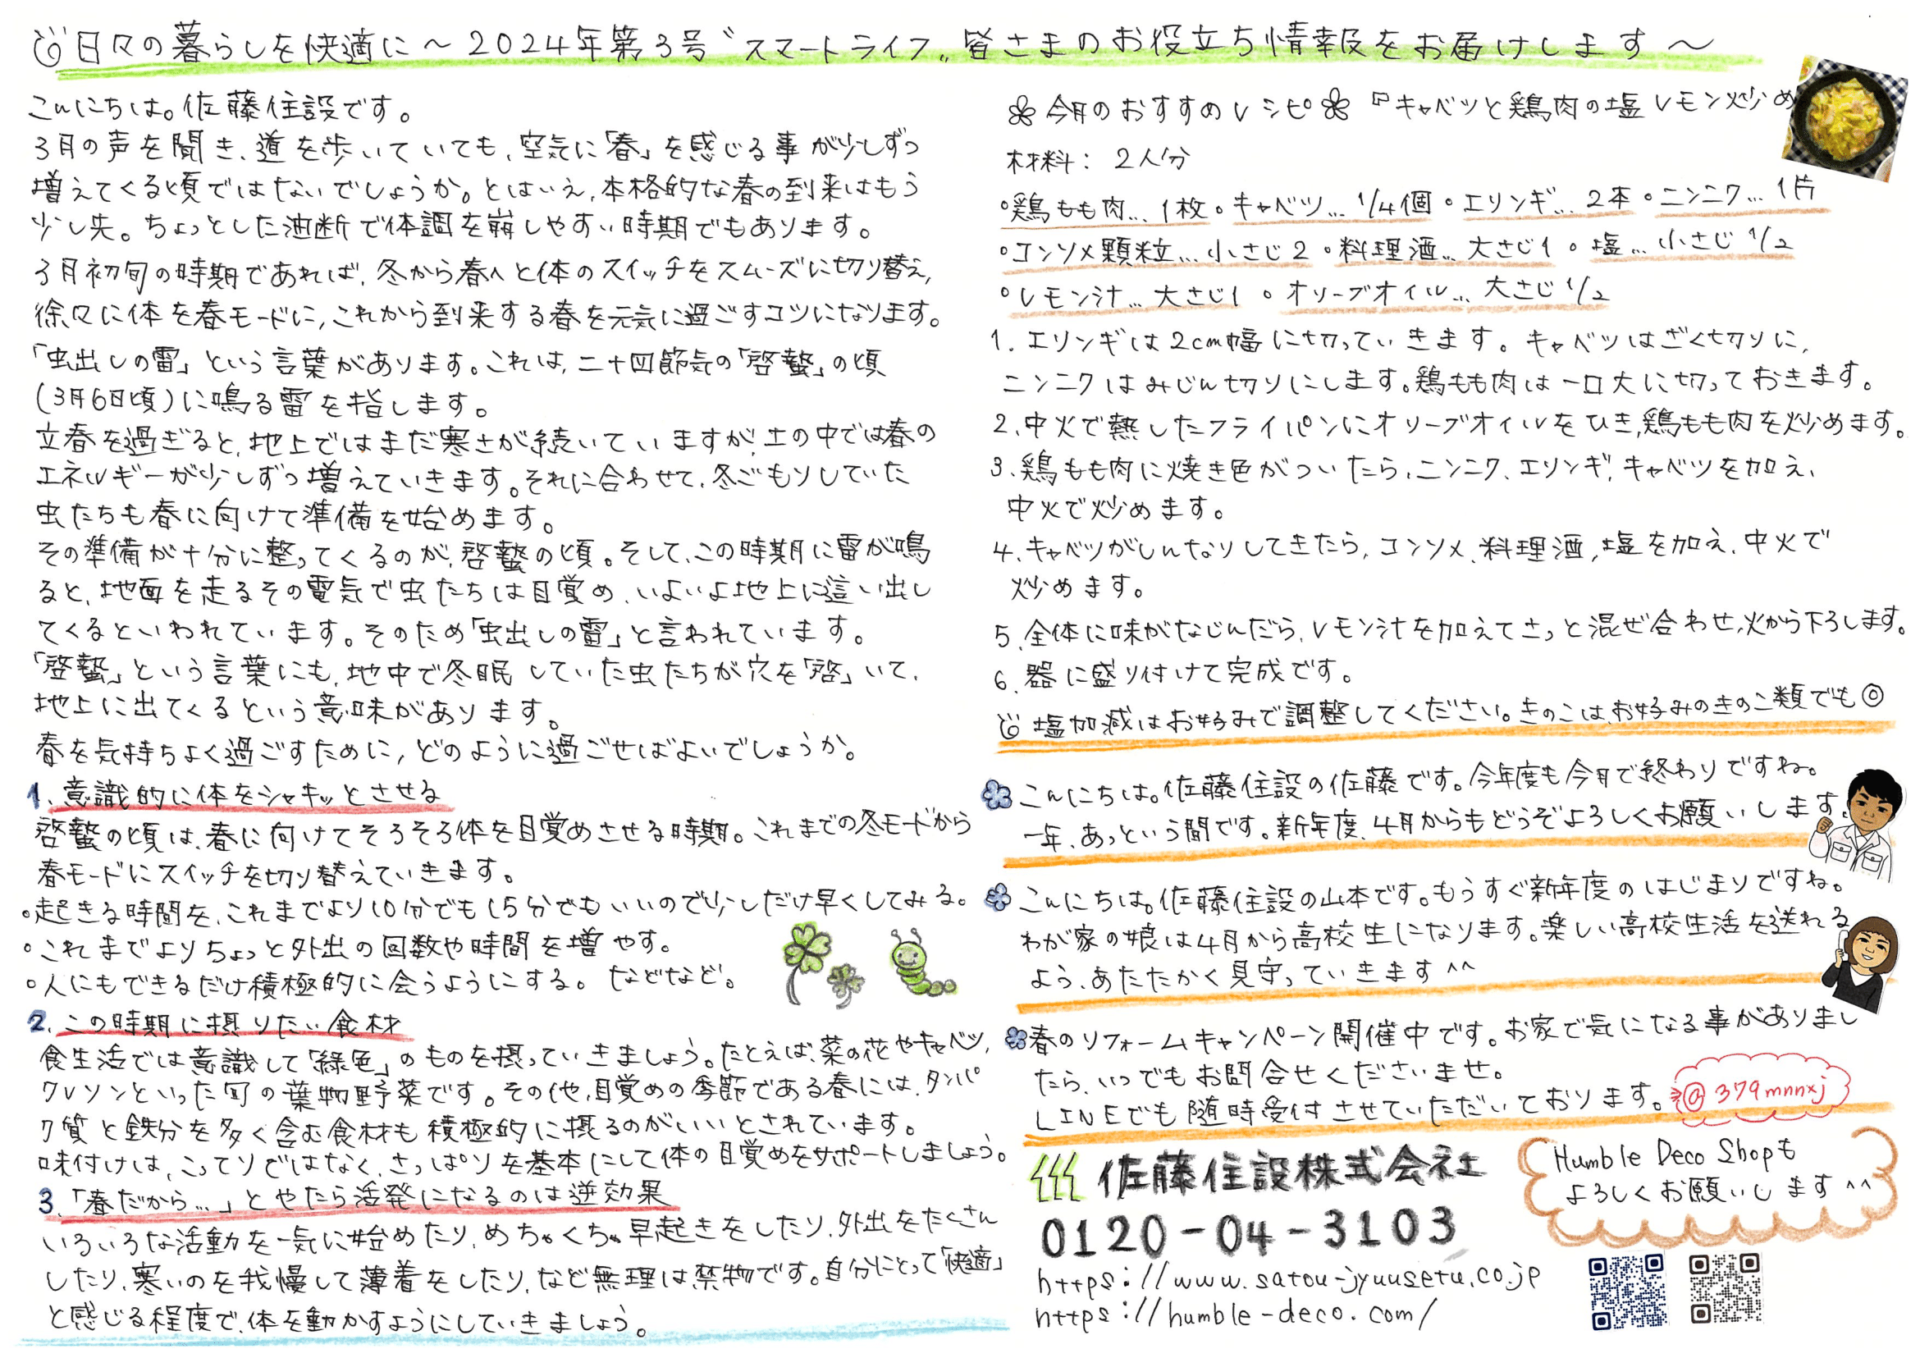 日々の暮らしを快適に～2024年第3号〝スマートライフ〟皆さまのお役立ち情報をお届けします～
こんにちは。佐藤住設です。
3月の声を聞き、道を歩いていても、空気に「春」を感じる事が少しずつ
増えてくる頃ではないでしょうか。とはいえ、本格的な春の到来はもう
少し先。ちょっとした油断で体調を崩しやすい時期でもあります。
3月初旬の時期であれば、冬から春へと体のスイッチをスムーズに切り替え、
徐々に体を春モードに、これから到来する春を元気に過ごすコツになります。
「虫出しの雷」という言葉があります。これは、二十四節気の「啓蟄」の頃
(3月6日頃)に鳴る雷を指します。
立春を過ぎると、地上ではまだ寒さが続いていますが、土の中では春の
エネルギーが少しずつ増えていきます。それに合わせて、冬ごもりしていた
虫たちも春に向けて準備を始めます。
その準備が十分に整ってくるのが、啓蟄の頃。そして、この時期に雷が鳴
ると、地面を走るその電気で虫たちは目覚め、いよいよ地上に這い出し
てくるといわれています。そのため「虫出しの雷」と言われています。
「啓蟄」という言葉にも、地中で冬眠していた虫たちが穴を「啓」いて、
地上に出てくるという意味があります。
春を気持ちよく過ごすために、どのように過ごせばよいでしょうか。
1. 意識的に体をシャキッとさせる
啓蟄の頃は、春に向けてそろそろ体を目覚めさせる時期。これまでの冬モードから
春モードにスイッチを切り替えていきます。
○起きる時間を、これまでより10分でも15分でもいいので少しだけ早くしてみる。
○これまでよりちょっと外出の回数や時間を増やす。
○人にもできるだけ積極的に会うようにする。などなど。
2. この時期に摂りたい食材
食生活では意識して「緑色」のものを摂っていきましょう。たとえば、菜の花やキャベツ、
クレソンといった旬の葉物野菜です。その他、目覚めの季節である春には、タンパ
ク質と鉄分を多く含む食材も積極的に摂るのがいいとされています。
味付けは、こってりではなく、さっぱりを基本にして体の目覚めをサポートしましょう。
3. 「春だから…」とやたら活発になるのは逆効果
いろいろな活動を一気に始めたり、めちゃくちゃ早起きをしたり、外出をたくさん
したり、寒いのを我慢して薄着をしたり、など無理は禁物です。自分にとって「快適」
と感じる程度で、体を動かすようにしていきましょう。
今月のおすすめレシピ 『キャベツと鶏肉の塩レモン炒め
材料：2人分
○鶏もも肉…1枚 ○キャベツ…1/4個 ○エリンギ…2本 ○ニンニク…1片
○コンソメ顆粒…小さじ2 ○料理酒…大さじ1 ○塩…小さじ1/2
○レモン汁…大さじ1 ○オリーブオイル…大さじ1/2
1. エリンギは2cm幅に切っていきます。キャベツはざく切りに、
ニンニクはみじん切りにします。鶏もも肉は一口大に切っておきます。
2. 中火で熱したフライパンにオリーブオイルをひき、鶏もも肉を炒めます。
3. 鶏もも肉に焼き色がついたら、ニンニク、エリンギ、キャベツを加え、
中火で炒めます。
4. キャベツがしんなりしてきたら、コンソメ、料理酒、塩を加え、中火で
炒めます。
5. 全体に味がなじんだら、レモン汁を加えてさっと混ぜ合わせ、火から下ろします。
6. 器に盛り付けて完成です。
塩加減はお好みで調整してください。きのこは、お好みのきのこ類でも◎
こんにちは。佐藤住設の佐藤です。今年度も今月で終わりですね。
一年、あっという間です。新年度、4月からもどうぞよろしくお願いします。
こんにちは。佐藤住設の山本です。もうすぐ新年度のはじまりですね。
わが家の娘は4月から高校生になります。楽しい高校生活を送れる
よう、あたたかく見守っていきます^^
春のリフォームキャンペーン開催中です。お家で気になる事がありまし
たら、いつでもお問合せくださいませ。
LINEでも随時受付させていただいております。
@379mnnxj
佐藤住設株式会社
0120-04-3103
https://www.satou-jyuusetu.co.jp
https://humble-deco.com/
Humble Deco Shopも
よろしくお願いします^^